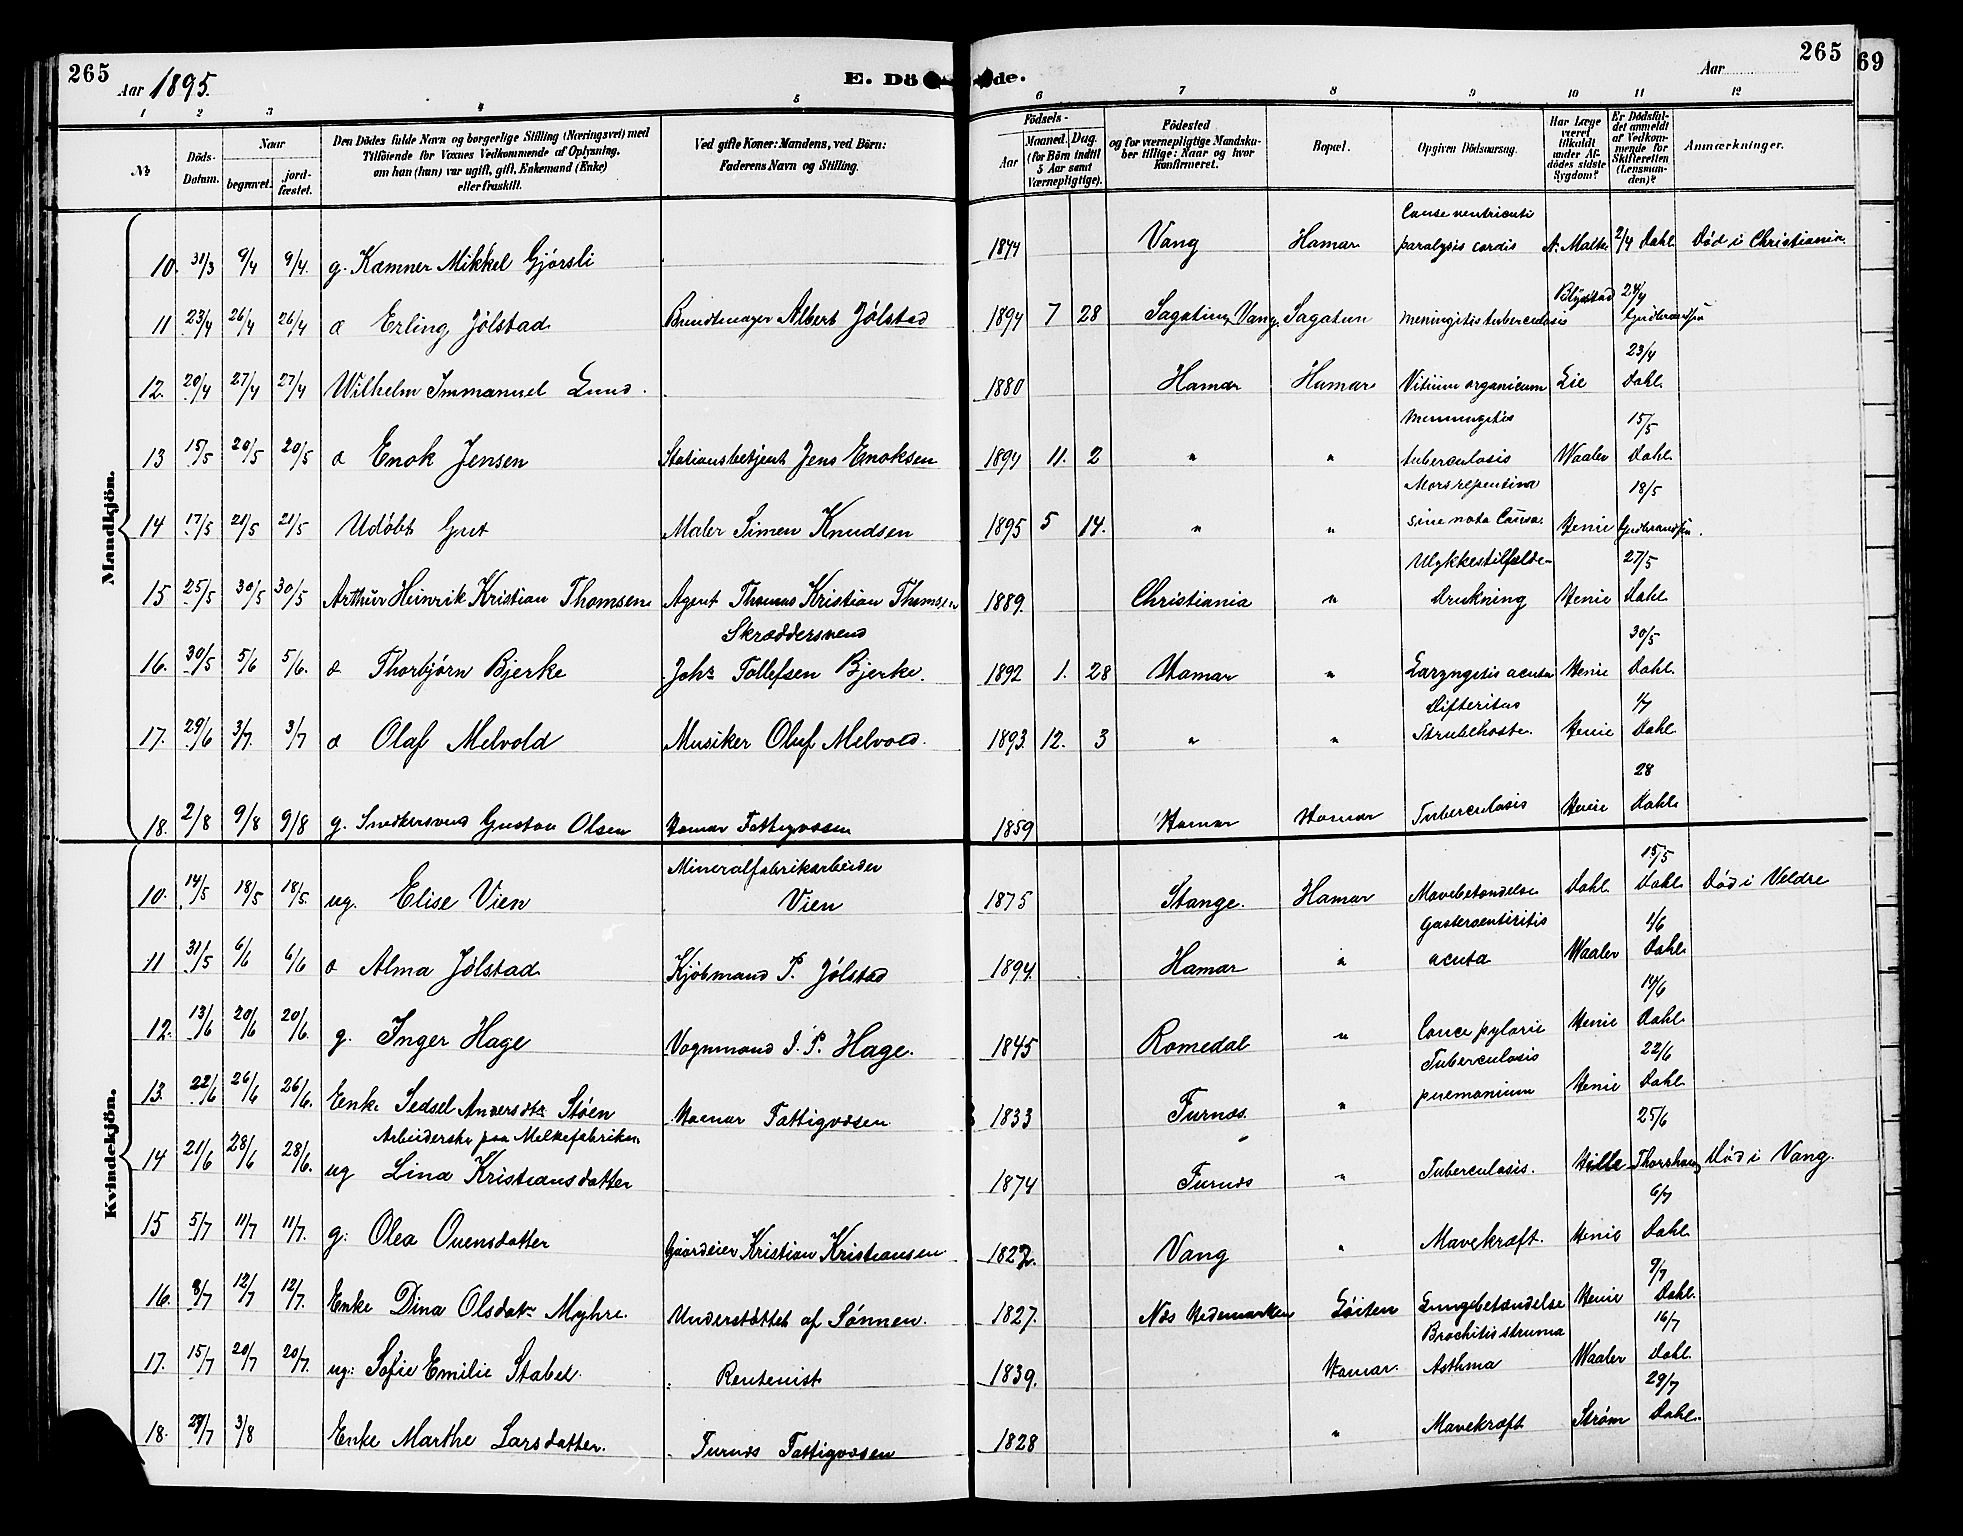 265
Aar 1895.
E. Dö de.
Aar
265
69
1 2 3 4 5 6 7 8 9 10 11 12
№
Döds-Datum.
Naar
begravet.
jord-fæstet.
Den Dödes fulde Navn og borgerlige Stilling (Næringsvei) med
Tilföiende for Voxnes Vedkommende af Oplysning,
om han (hun) var ugift, gift, Enkemand (Enke)
eller fraskilt.
Ved gifte Koner: Mandens, ved Börn:
Faderens Navn og Stilling.
Födsels-
Aar
Maaned. Dag.
(for Börn indtil
5 Aar samt
Værnepligtige).
Födested
og for værnepligtige Mandskaber tillige: Naar og hvor
Konfirmeret.
Bopæl.
Opgiven Dödsaarsag.
Har Læge
været
tilkaldt
under Afdödes sidste
Sygdom?
Er Dödsfaldet anmeldt
af Vedkommende for
Skifteretten
(Lensmanden)?
Anmærkninger.
Mandkjön.
10. 31/3 9/4 9/4. g. Kæmner Mikkel Gjörsli 1844 Vang Hamar paralysis cordis 2/4 Dahl Död i Christiania.
11 23/4 26/4 26/4 d Erling Jölstad Albert Jölstad 1894 7 28 Vang. Sagatun meningitis tuberculosis 24/4
12. 20/4 27/4 27/4 Wilhelm Immanuel Lund. 1880 Hamar Hamar Vitium organicum Lie 23/4 Dahl.
13 15/5 20/5 20/5 d Enok Jensen Stationsbetjent Jens Enoksen 1894 11. 2 " " Meningitis tuberculosis Waaler 15/5 Dahl.
14 17/5 21/5 21/5 Udöbt Gut Maler Simen Knudsen 1895 5 14. " " Mors repentina sine nota Causa. Henie 18/5
15 25/5 30/5 30/5 Arthur Heinrik Kristian Thomsen Agent Thomas Kristian Thomsen 1889. Christiania " Ulykkestilfælde- Drukning Henie 27/5 Dahl
16. 30/5 5/6 5/6. d Thorbjörn Bjerke Skræddersvend Johs Tollefsen Bjerke. 1892 1. 28 Hamar " Laryngitis acuta Henie 30/5 Dahl.
17. 29/6 3/7. 3/7 d Olaf Melvold Musiker Oluf Melvold. 1893. 12. 3 " " Difteritus Strubehoste. Henie 1/7 Dahl
18. 2/8 9/8 9/8 g. Snedkersvend Gustav Olsen Hamar Fattigvæsen 1859 Hamar Hamar Tuberculosis Henie 28 Dahl.
Kvindekjön.
10. 14/5 18/5 18/5. ug. Elise Vien Mineralfabrikarbeider Vien 1875 Stange. Hamar Mavebetændelse Dahl. 15/5 Dahl Död i Veldre
11 31/5 6/6 6/6 d Alma Jölstad Kjöbmand P. Jölstad 1894. Hamar " Gasteroentiritis acuta Waaler 1/6 Dahl.
12. 13/6 20/6 20/6. g. Inger Hage Vognmand I. P. Hage. 1845 Romedal " Cance pylorie Henie 14/6 Dahl.
13. 22/6 26/6 26/6. Enke Sedsel Andersdtr Stöen Hamar Fattigvæsen 1833 Furnæs. " Tuberculosis pulmonium Henie 22/6 Dahl.
14 21/6 28/6 28/6. ug Arbeiderske paa Melkefabriken Lina Kristiansdatter 1874 Furnæs " Tuberculosis. 25/6 Död i Vang.
15 5/7 11/7 11/7. g: Olea Ovensdatter Gaardeier Kristian Kristiansen 1822. Vang " Mavekræft. Henie 6/7 Dahl.
16. 8/7 12/7 12/7. Enke Dina Olsdatr Myhre. Understöttet af Sönnen. 1827. Næs Hedemarken Löiten Lungebetændelse Henie 9/7 Dahl.
17. 15/7 20/7 20/7. ug: Sofie Emilie Stabel. Rentenist 1839. Hamar. Brochitis struma Asthma Waaler 16/7 Dahl.
18. 29/7 3/8 Enke Marthe Larsdatter. Furnæs Fattigvæsen 1828 " Mavekræft Ström 29/7 Dahl.